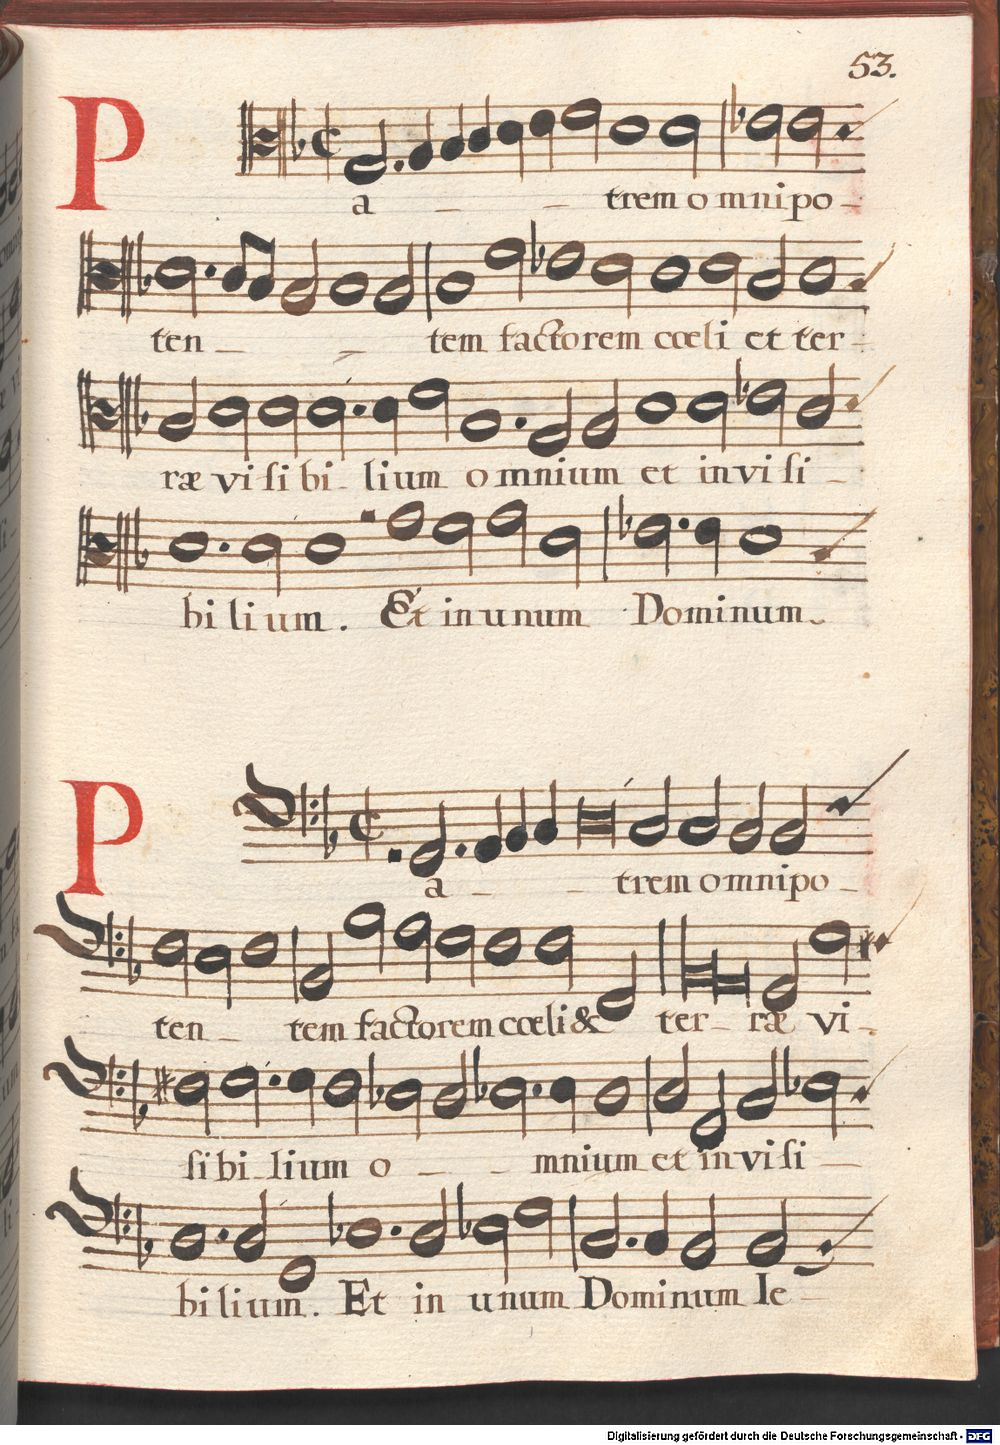 53.
P
a - - - trem omnipo -
ten - - tem factorem cœli et ter -
ræ visibi - lium omnium et invisi -
bilium. Et in unum Dominum.
P
a - - - trem omnipo -
ten - tem factorem cœli & ter - ræ vi -
sibi - lium o - - - mnium et invisi -
bilium. Et in unum Dominum Ie -
Digitalisierung gefördert durch die Deutsche Forschungsgemeinschaft - DFG